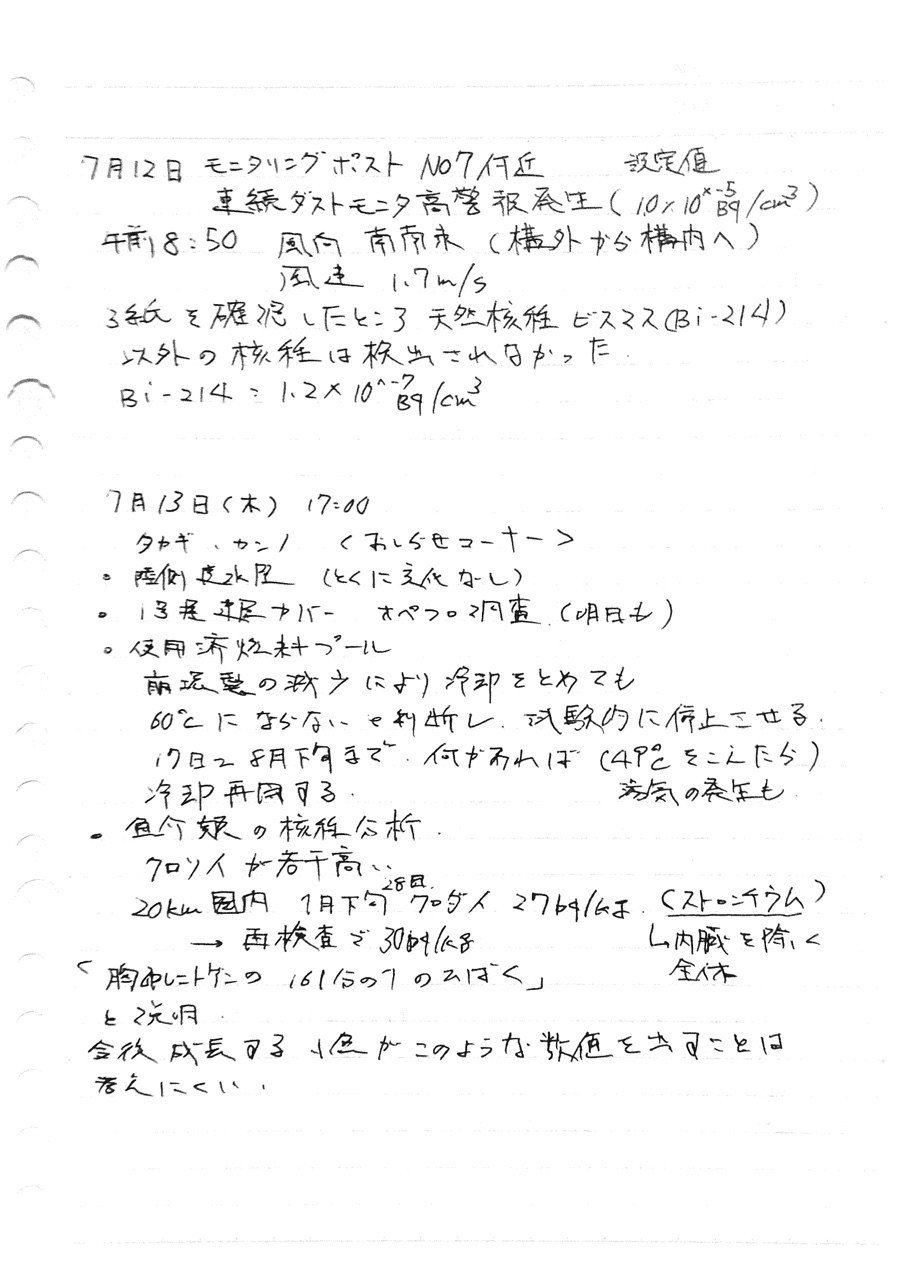 7月12日 モニタリングポスト No7付近 設定値
連続ダストモニタ高警報発生(10×10^-5 Bq/cm3)
午前8:50 風向 南南東(構外から構内へ)
風速 1.7m/s
ろ紙を確認したところ 天然核種 ビスマス(Bi-214)
以外の核種は検出されなかった.
Bi-214:1.2×10^-7 Bq/cm3
7月13日(木) 17:00
タカギ、カンノ <おしらせコーナー>
・陸側遮水壁 (とくに変化なし)
・1号建屋カバー オペフロ調査(明日も)
・使用済燃料プール
崩壊熱の減少により冷却をとめても
60℃にならないと判断し、試験的に停止させる.
17日〜8月下旬まで.何かあれば(49℃をこえたら)
冷却再開する. 蒸気の発生も
・魚介類の核種分析.
クロソイが若干高い、
20km圏内 1月下旬 28日. クロダイ 27bq/kg (ストロンチウム)
→ 再検査で30bq/kg ↳内臓を除く
全体
「胸部レントゲンの 161分の1のひばく」
と説明.
今後成長する小魚がこのような数値を出すことは
考えにくい.